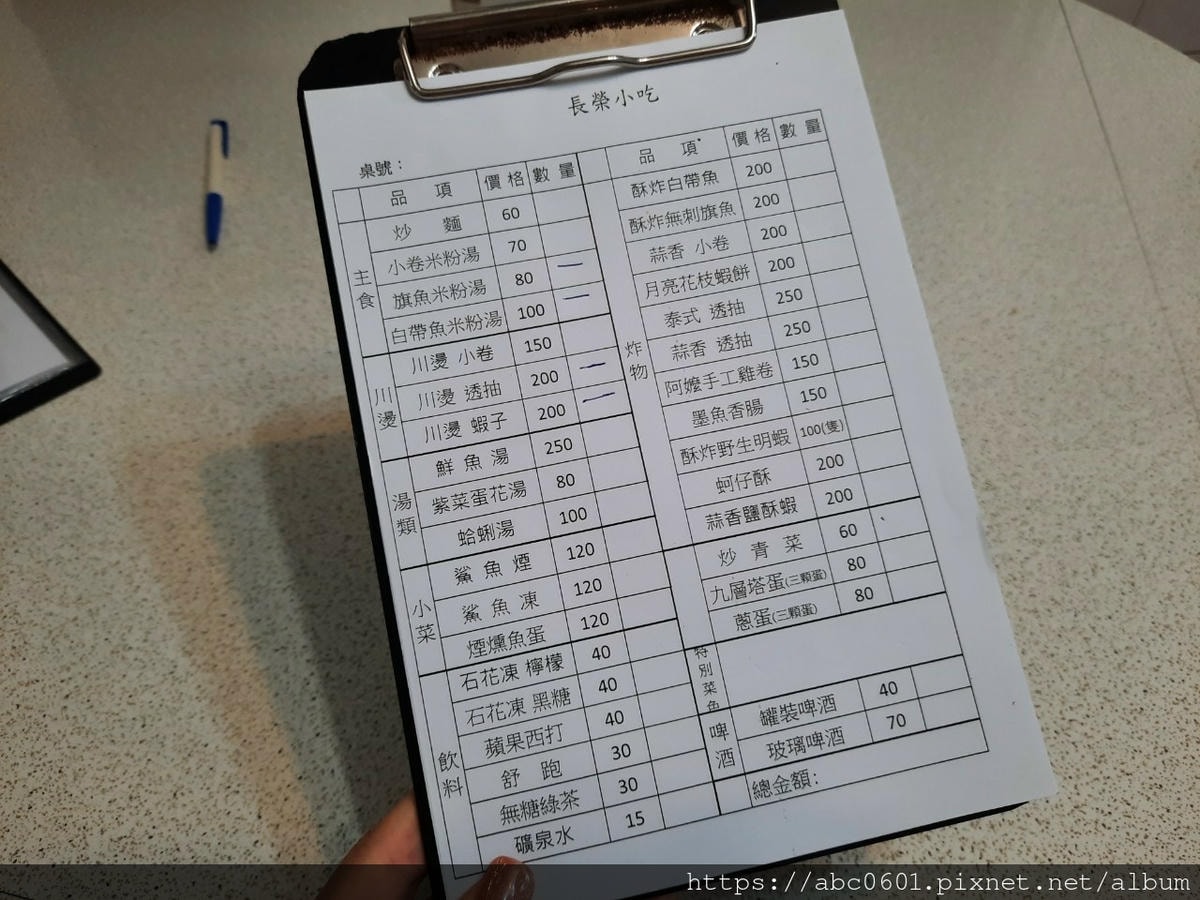 長榮小吃
桌號：
品 項 價格 數量
主食
炒 麵 60
小卷米粉湯 70
旗魚米粉湯 80 一
白帶魚米粉湯 100 一
川燙
川燙 小卷 150
川燙 透抽 200 一
川燙 蝦子 200 一
湯類
鮮魚湯 250
紫菜蛋花湯 80
蛤蜊湯 100
小菜
鯊魚煙 120
鯊魚凍 120
煙燻魚蛋 120
飲料
石花凍 檸檬 40
石花凍 黑糖 40
蘋果西打 40
舒 跑 30
無糖綠茶 30
礦泉水 15
品 項 價格 數量
炸物
酥炸白帶魚 200
酥炸無刺旗魚 200
蒜香 小卷 200
月亮花枝蝦餅 200
泰式 透抽 250
蒜香 透抽 250
阿嬤手工雞卷 150
墨魚香腸 150
酥炸野生明蝦 100(隻)
蚵仔酥 200
蒜香鹽酥蝦 200
炒青菜 60
九層塔蛋(三顆蛋) 80
蔥蛋(三顆蛋) 80
特別菜色
啤酒
罐裝啤酒 40
玻璃啤酒 70
總金額：
https://abc0601.pixnet.net/album